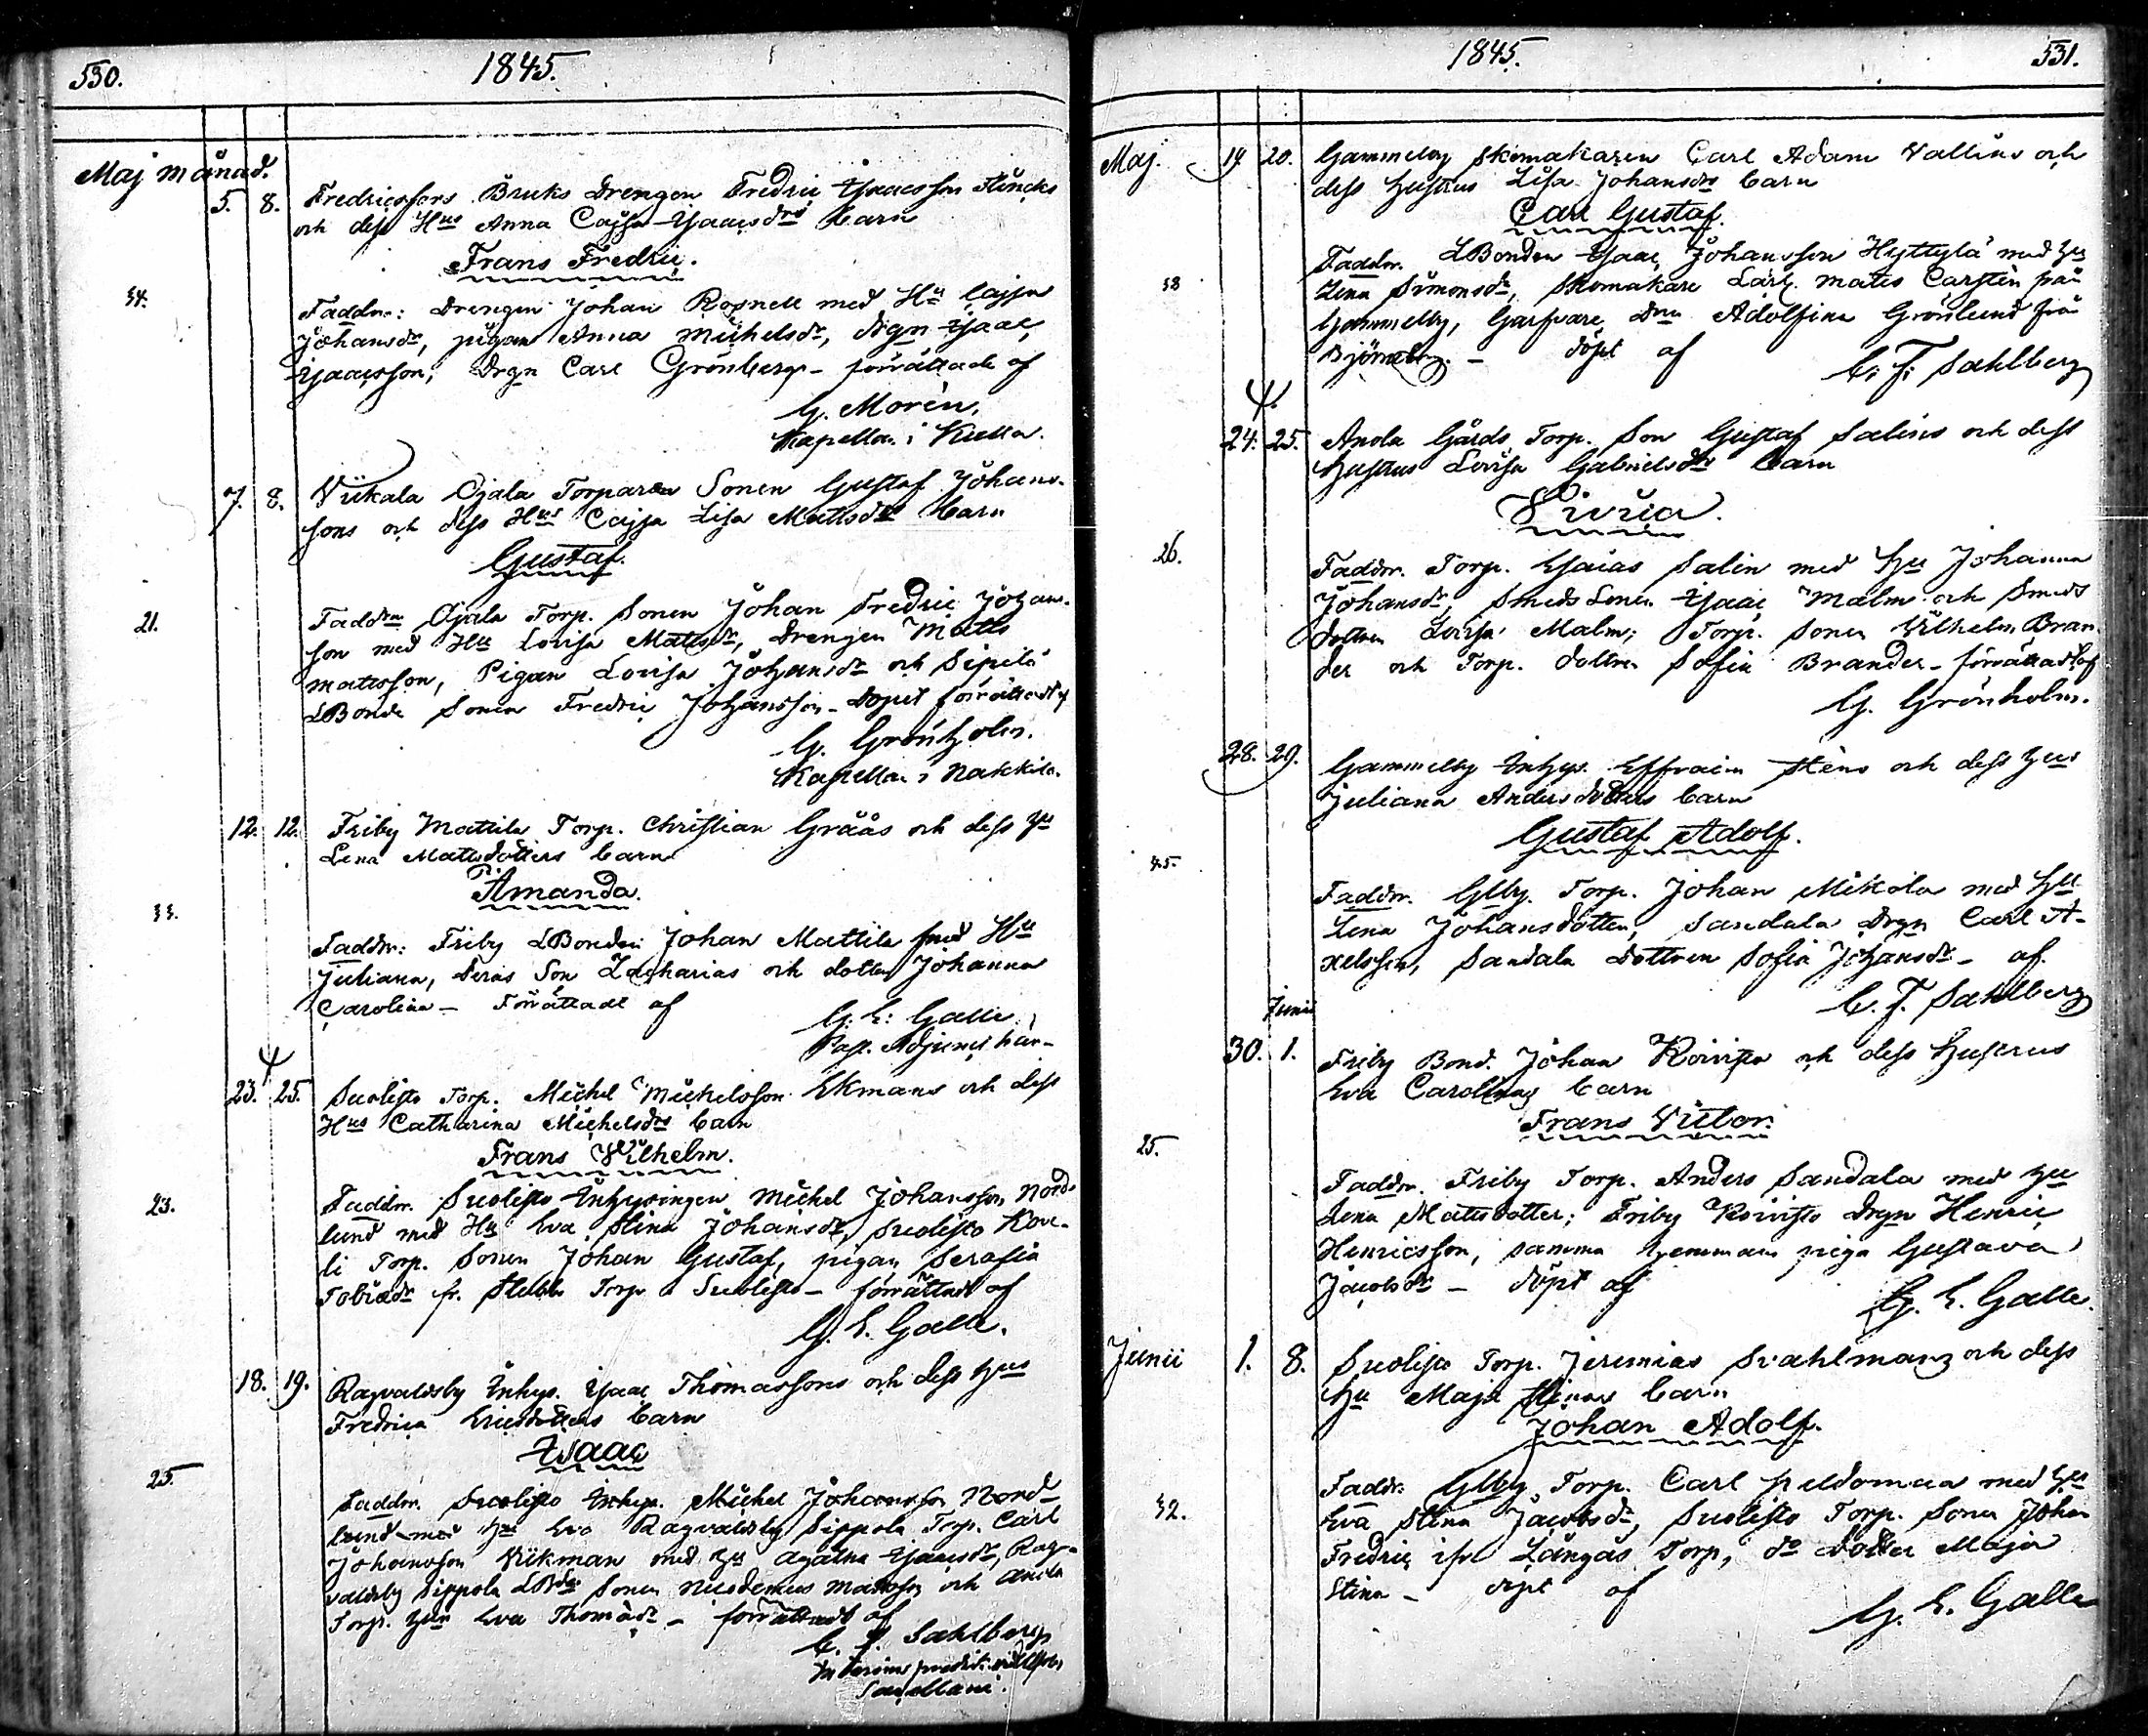 530.
1845.
Maj månad.
5. 8. Fredricsfors Bruks Drengen Fredric Isaacsson
och dess Hus Anna Cajsa Isaacsdrs barn
Frans Fredric.
34. Faddr: Drengen Johan Rosnell med Hu Cajsa
Johansdr, pigan Anna Michelsdr, drgn Isaac
Isaacsson, Drgn Carl Grönberg - förrättade af
G. Morén.
Kapellan i Kulla.
7. 8. Viikala Ojala Torparen Sonen Gustaf Johans-
sons och dess Hus Cajsa Lisa Mattsdrs barn
Gustaf.
21. Faddr Ojala Torp. Sonen Johan Fredric Johans-
son med Hu Lovisa Mattsdr, Drengen Matts
Mattsson, Pigan Lovisa Johansdr och Sipilä
LBonde Sonen Fredric Johansson - Dopet förrättadt af
G. Grönholm.
Kapellan i Nakkila.
12. 12. Friby Mattila Torp. Christian Gråås och dess Hu
Lena Mattsdotters barn
Amanda.
33. Faddr: Friby LBonden Johan Mattila med Hu
Juliana, deras Son Zacharias och dotter Johanna
Carolina - Förrättadt af
G. E. Galle
Past. Adjunct här-
23. 25. Suolisto Torp. Michel Michelsson Ekmans och dess
Hus Catharina Michelsdrs barn
Frans Wilhelm.
23. Faddr. Suolisto Inhysingen Michel Johansson Nord-
lund med Hu Eva Stina Johansdr, Suolisto
Torp. Sonen Johan Gustaf, pigan Serafia
Tobiædr fr. Torp Suolisto - förrättadt af
G. E. Galle.
18. 19. Ragvaldsby Inhys. Isaac Thomassons och dess Hus
Fredrica Ericsdotters barn
Isaac
25. Faddr. Suolisto Inhys. Michel Johansson Nord-
lund med Hu Eva Ragvaldsby Sippola Torp. Carl
Johansson Wikman med Hu Agatha Isaacsdr, Rag-
valdsby Sippola LBds Sonen Nicodemus Mattsson och Anola
Torp. Hun Eva Thomædr - förrättadt af
C. F. Sahlberg
1845.
531.
Maj. 19 20. Gammelby Skomakaren Carl Adam Vallins och
dess hustrus Lisa Johansdrs barn
Carl Gustaf.
38 Faddr. LBonden Isaac Johansson Hyttylä med Hu
Lena Simonsdr, Skomakare Lärl. Mats Carstén på
Gammelby, Garfvare Dtn Adolfina Grönlund från
Björneborg. - döpt af
C. F. Sahlberg
24. 25. Anola Gårds Torp. Son Gustaf Salins och dess
hustrus Lovisa Gabrielsdrs barn
Vivica.
26. Faddr. Torp. Esaias Salin med Hu Johanna
Johansdr, Smeds Sonen Isaac Malm och Smeds
dottren Lovisa Malm; Torp. Sonen Wilhelm Bran-
der och Torp. dottren Sofia Brander - förrättadt af
G. Grönholm.
28. 29. Gammelby Inhys. Effraim Sténs och dess Hus
Juliana Andersdotters barn
Gustaf Adolf.
45. Faddr. Glby. Torp. Johan Mikola med Hu
Lena Johansdotter, Sandala Drgn Carl A-
xelsson, Sandala Dottren Sofia Johansdr - af
C. F. Sahlberg
Junii
30. 1. Friby Bond. Johan Koivisto och dess hustrus
Eva Carolinas barn
Frans Victor.
25. Faddr. Friby Torp. Anders Sandala med Hu
Lena Mattsdotter; Friby Koivisto Drgn Henric
Henricsson, samma hemmans piga Gustava
Jacobsdr - döpt af
G. E. Galle.
Junii 1. 8. Suolisto Torp. Jeremias Svahlmans och dess
Hu Maja Stinas barn
Johan Adolf.
32. Faddr. Glby Torp. Carl Peldomaa med Hu
Eva Stina Jacobsdr, Suolisto Torp. Sonen Johan
Fredric ifr Långås Torp, do Dotter Maja
Stina - döpt af
G. E. Galle